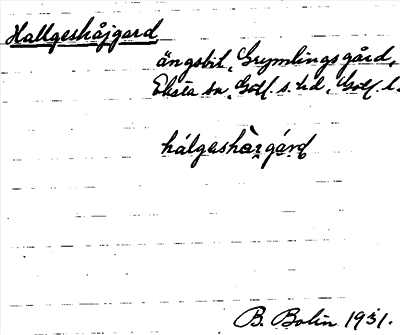 Hallgeshåjgard
ängsbit, Grymlingsgård,
Eksta sn, Gotl. s. hd, Gotl. l.
hálgeshàrgárd
B. Bolin 1931.